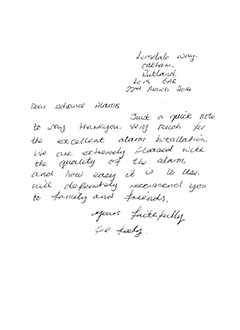 Lonsdale Way,
Oakham,
Rutland.
LE15
22nd March 2016
Dear Advance Alarms
Just a quick note
to say thankyou very much for
the excellent alarm installation,
We are extremely pleased with
the quality of the alarm,
and how easy it is to use.
will definately recommend you
to family and friends,
Yours faithfully